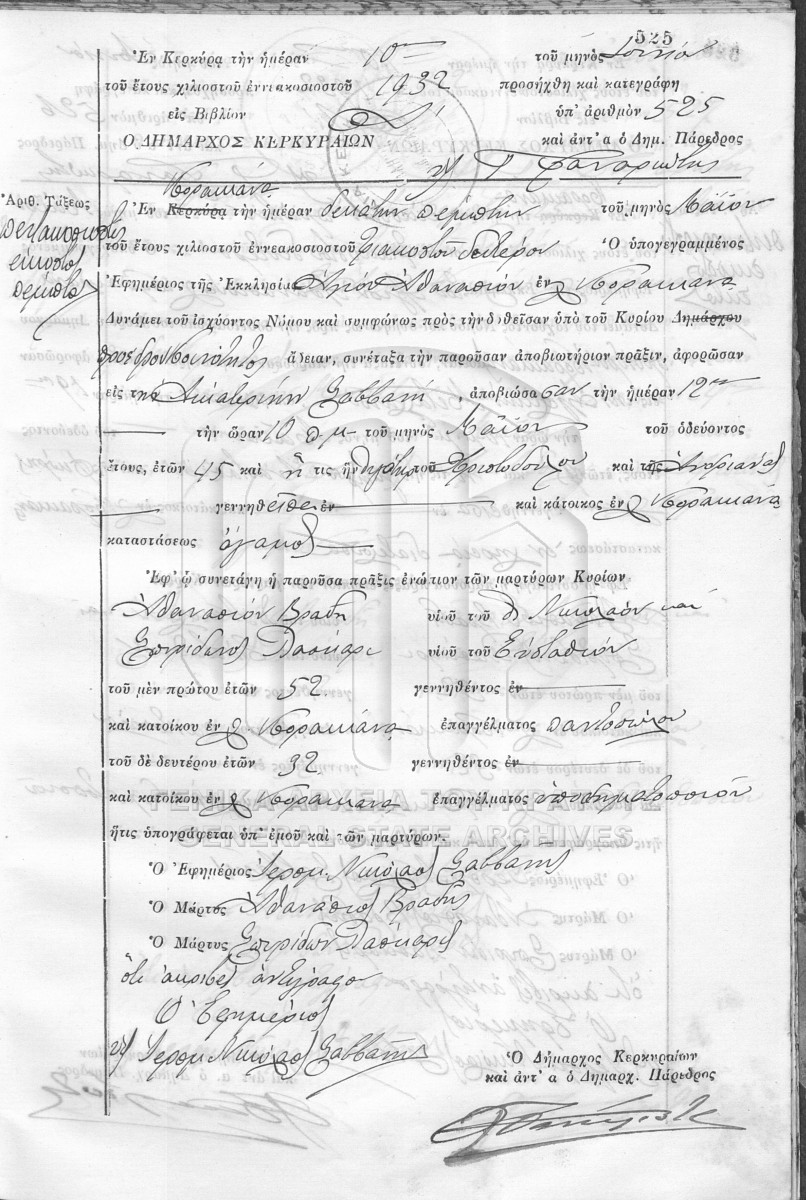 525
Ἐν Κερκύρᾳ τὴν ἡμέραν 10ην τοῦ μηνὸς Ἰουνίου
τοῦ ἔτους χιλιοστοῦ ἐννεακοσιοστοῦ 1932 προσήχθη καὶ κατεγράφη
εἰς Βιβλίον Δ' ὑπ' ἀριθμὸν 525
Ο ΔΗΜΑΡΧΟΣ ΚΕΡΚΥΡΑΙΩΝ καὶ ἀντ' α ὁ Δημ. Πάρεδρος
Κορακιάνα
Ἀριθ. Τάξεως
πεντακοσιοστὸς
εἰκοστὸς
πέμπτος
Ἐν Κερκύρᾳ τὴν ἡμέραν δεκάτην πέμπτην τοῦ μηνὸς Μαΐου
τοῦ ἔτους χιλιοστοῦ ἐννεακοσιοστοῦ τριακοστοῦ δευτέρου Ὁ ὑπογεγραμμένος
Ἐφημέριος τῆς Ἐκκλησίας Ἁγίου Ἀθανασίου ἐν Κορακιάνᾳ
Δυνάμει τοῦ ἰσχύοντος Νόμου καὶ συμφώνως πρὸς τὴν δοθεῖσαν ὑπὸ τοῦ Κυρίου Δημάρχου
Προέδρου Κοινότητος ἄδειαν, συνέταξα τὴν παροῦσαν ἀποβιωτήριον πρᾶξιν, ἀφορῶσαν
εἰς τὴν Αἰκατερίνην Σαββανῆ, ἀποβιώσασαν τὴν ἡμέραν 12ην
τὴν ὥραν 10 π.μ. τοῦ μηνὸς Μαΐου τοῦ ὁδεύοντος
ἔτους, ἐτῶν 45 καὶ ἥτις ἦν θυγάτηρ τοῦ Χριστοδούλου καὶ τῆς Ἀνδριάνας
γεννηθεῖσα ἐν καὶ κάτοικος ἐν Κορακιάνᾳ
καταστάσεως ἄγαμος
Ἐφ' ᾧ συνετάγη ἡ παροῦσα πρᾶξις ἐνώπιον τῶν μαρτύρων Κυρίων
Ἀθανασίου Βραδῆ υἱοῦ τοῦ Νικολάου καὶ
Σπυρίδωνος Λάσκαρι υἱοῦ τοῦ Εὐσταθίου
τοῦ μὲν πρώτου ἐτῶν 52 γεννηθέντος ἐν
καὶ κατοίκου ἐν Κορακιάνᾳ ἐπαγγέλματος παντοπώλου
τοῦ δὲ δευτέρου ἐτῶν 32 γεννηθέντος ἐν
καὶ κατοίκου ἐν Κορακιάνᾳ ἐπαγγέλματος ὑποδηματοποιοῦ
ΓΕΝΙΚΑ ΑΡΧΕΙΑ ΤΟΥ ΚΡΑΤΟΥΣ
ἥτις ὑπογράφεται ὑπ' ἐμοῦ καὶ τῶν μαρτύρων.
GENERAL STATE ARCHIVES
Ὁ Ἐφημέριος Ἱερομ. Νικόλαος Σαββανῆς
Ὁ Μάρτυς Ἀθανάσιος Βραδῆς
Ὁ Μάρτυς Σπυρίδων Λάσκαρις
Ὅτι ἀκριβὲς ἀντίγραφον
Ὁ Ἐφημέριος
Ἱερομ. Νικόλαος Σαββανῆς
Ὁ Δήμαρχος Κερκυραίων
καὶ ἀντ' α ὁ Δημαρχ. Πάρεδρος